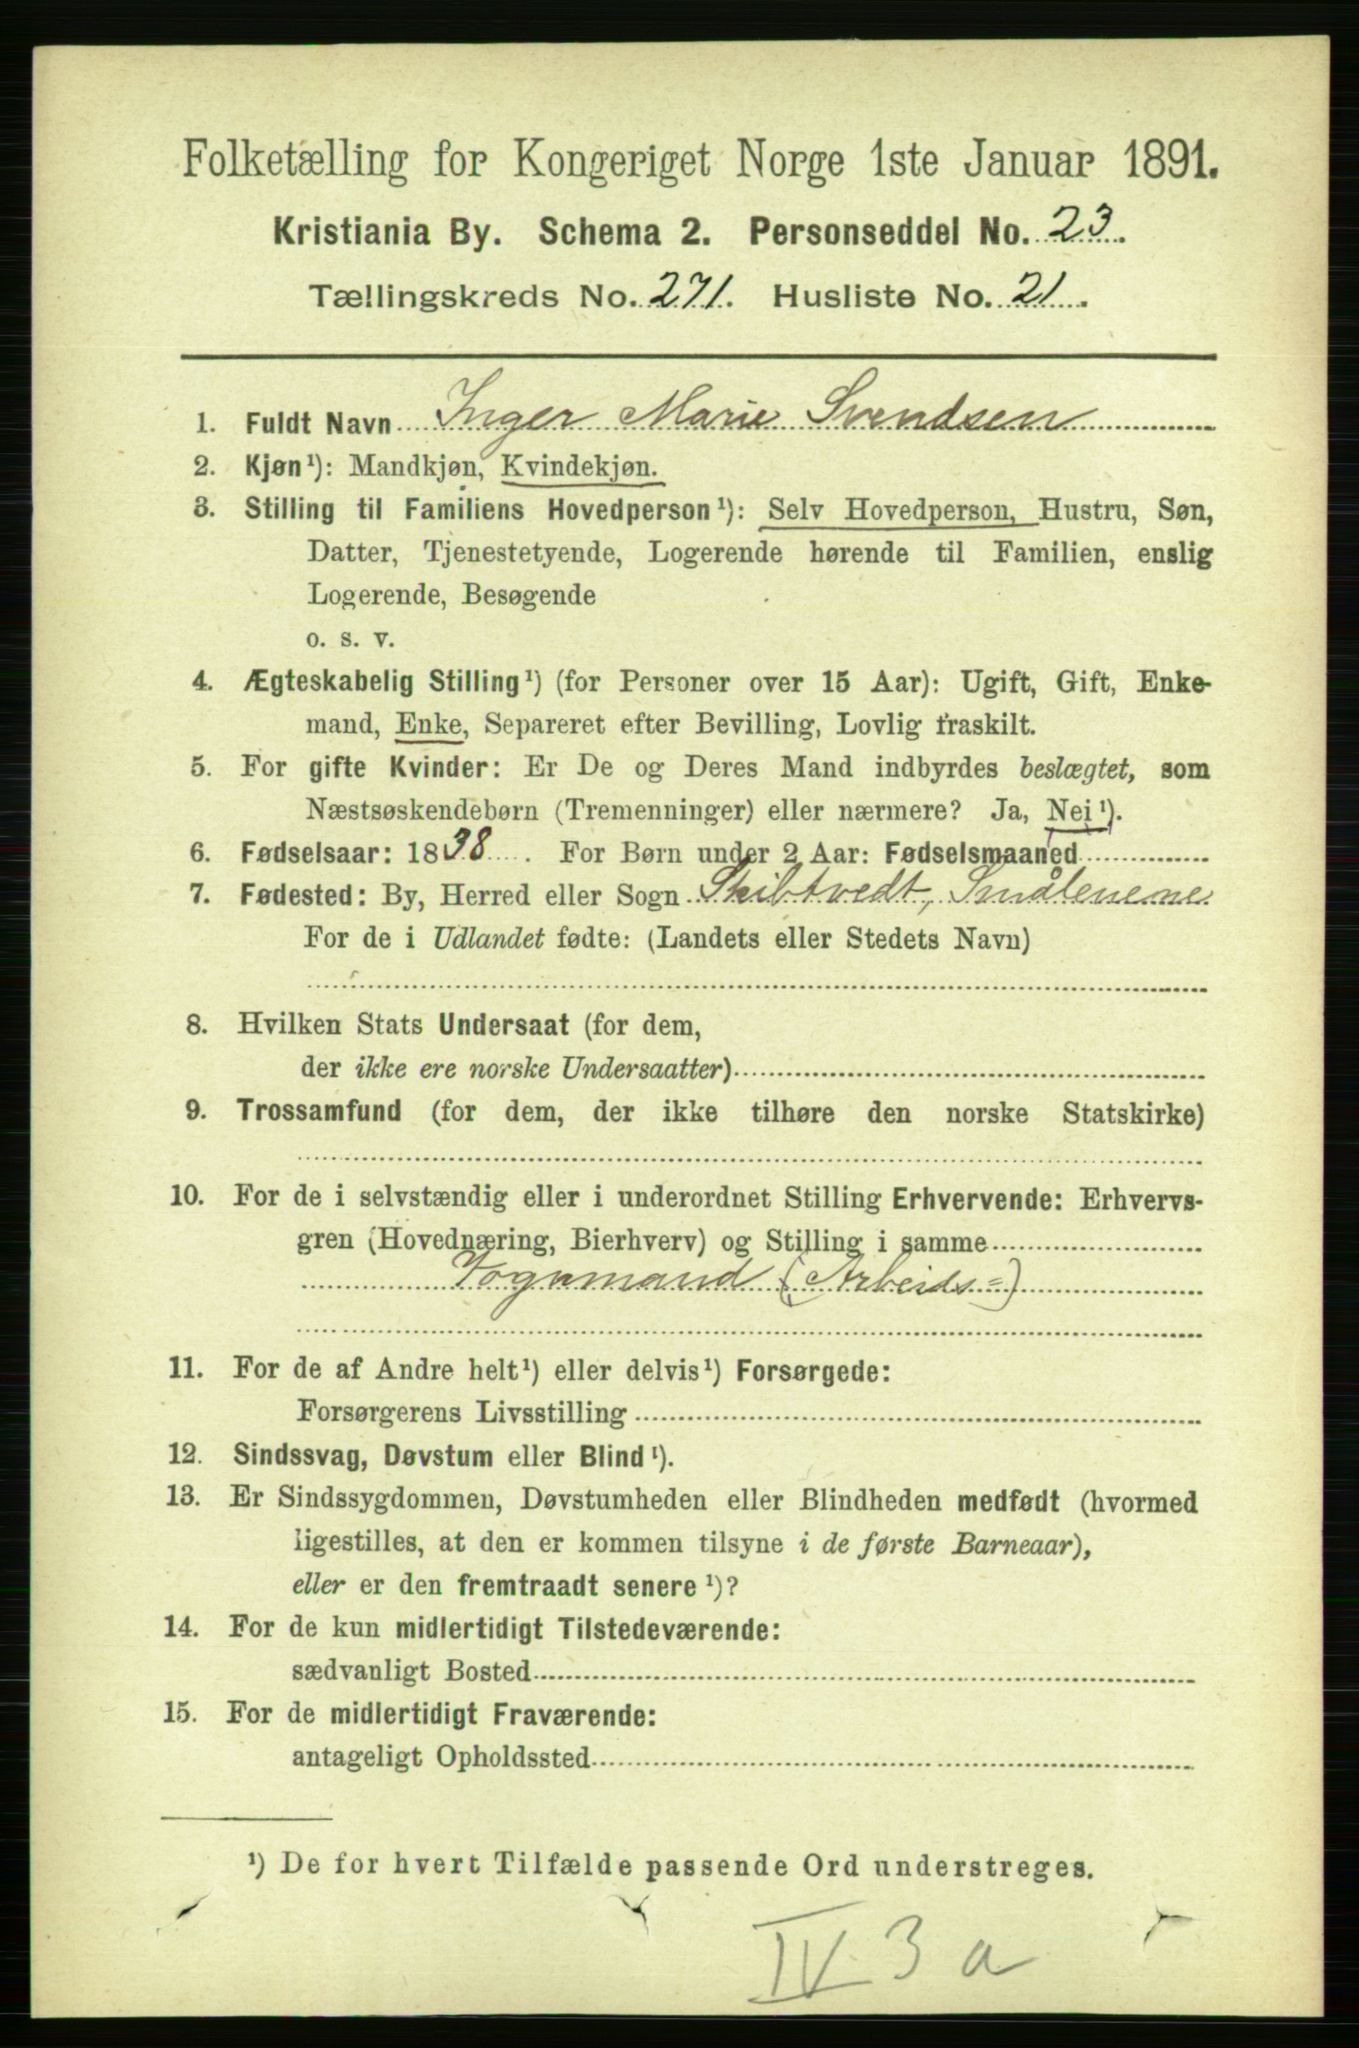 Folketælling for Kongeriget Norge 1ste Januar 1891.
Kristiania By. Schema 2. Personseddel No. 23.
Tællingskreds No. 271. Husliste No. 21.
1. Fuldt Navn Inger Marie Svendsen
2. Kjøn¹): Mandkjøn, Kvindekjøn.
3. Stilling til Familiens Hovedperson¹): Selv Hovedperson, Hustru, Søn,
Datter, Tjenestetyende, Logerende hørende til Familien, enslig
Logerende, Besøgende
o. s. v.
4. Ægteskabelig Stilling¹) (for Personer over 15 Aar): Ugift, Gift, Enke-
mand, Enke, Separeret efter Bevilling, Lovlig fraskilt.
5. For gifte Kvinder: Er De og Deres Mand indbyrdes beslægtet, som
Næstsøskendebørn (Tremenninger) eller nærmere? Ja, Nei¹).
6. Fødselsaar: 1838. For Børn under 2 Aar: Fødselsmaaned
7. Fødested: By, Herred eller Sogn Skibtvedt, Smålenene
For de i Udlandet fødte: (Landets eller Stedets Navn)
8. Hvilken Stats Undersaat (for dem,
der ikke ere norske Undersaatter)
9. Trossamfund (for dem, der ikke tilhøre den norske Statskirke)
10. For de i selvstændig eller i underordnet Stilling Erhvervende: Erhvervs-
gren (Hovednæring, Bierhverv) og Stilling i samme
Vognmand (Arbeids=)
11. For de af Andre helt¹) eller delvis¹) Forsørgede:
Forsørgerens Livsstilling
12. Sindssvag, Døvstum eller Blind¹).
13. Er Sindssygdommen, Døvstumheden eller Blindheden medfødt (hvormed
ligestilles, at den er kommen tilsyne i de første Barneaar),
eller er den fremtraadt senere¹)?
14. For de kun midlertidigt Tilstedeværende:
sædvanligt Bosted
15. For de midlertidigt Fraværende:
antageligt Opholdssted
¹) De for hvert Tilfælde passende Ord understreges.
IV 3 a